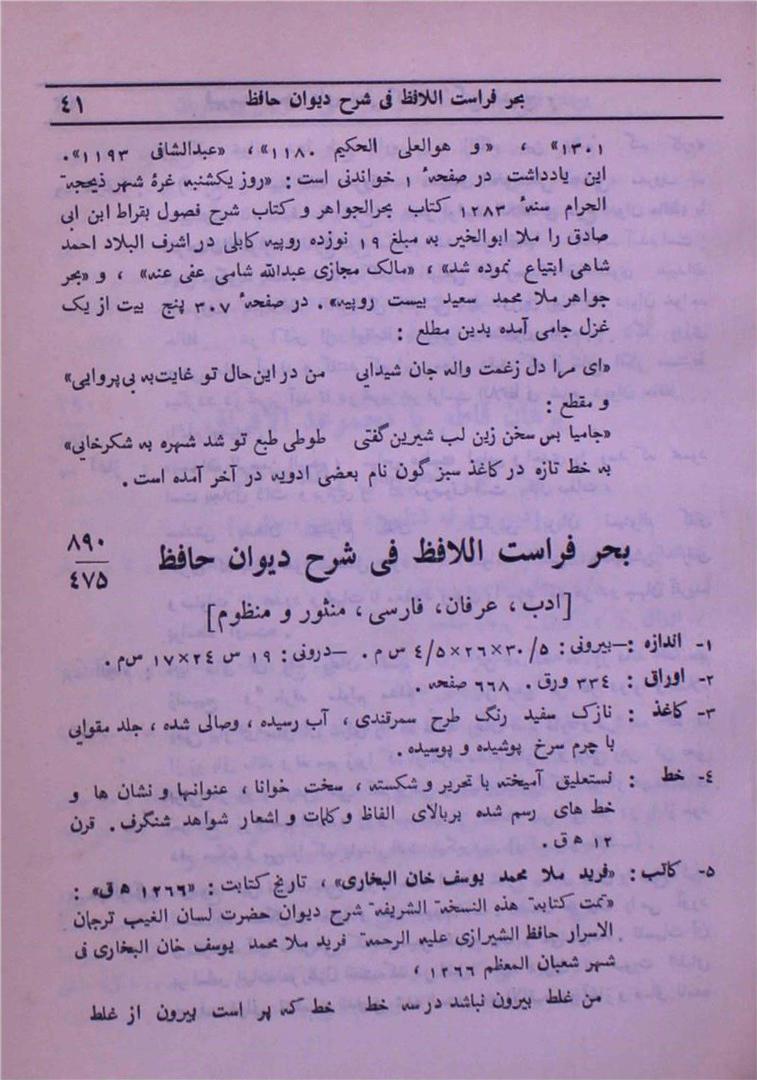 بحر فراست اللافظ فی شرح دیوان حافظ ٤١
١٣٠١» ، «و هوالعلی الحکیم ١١٨٠» ، «عبدالشافی ١١٩٣».
این یادداشت در صفحهٔ ١ خواندنی است : «روز یکشنبه غرهٔ شهر ذیحجة
الحرام سنهٔ ١٢٨٣ کتاب بحرالجواهر و کتاب شرح فصول بقراط ابن ابی
صادق را ملا ابوالخیر به مبلغ ١٩ نوزده روپیه کابلی در اشرف البلاد احمد
شاهی ابتیاع نموده شد» ، «مالک مجازی عبدالله شامی عفی عنه» ، و «بحر
جواهر ملا محمد سعید بیست روپیه» . در صفحهٔ ٣٠٧ پنج بیت از یک
غزل جامی آمده بدین مطلع :
«ای مرا دل زغمت واله جان شیدایی من در این حال تو غایت به بی پروایی»
و مقطع :
«جامیا بس سخن زین لب شیرین گفتی طوطی طبع تو شد شهره به شکرخایی»
به خط تازه در کاغذ سبز گون نام بعضی ادویه در آخر آمده است .
بحر فراست اللافظ فی شرح دیوان حافظ ٨٩٠
٤٧٥
[ادب ، عرفان ، فارسی ، منثور و منظوم]
١- اندازه : —بیرونی : ٣٠/٥×٢٦×٤/٥ س م . —درونی : ١٩ س ٢٤×١٧ س م .
٢- اوراق : ٣٣٤ ورق ، ٦٦٨ صفحه .
٣- کاغذ : نازک سفید رنگ طرح سمرقندی ، آب رسیده ، وصالی شده ، جلد مقوایی
با چرم سرخ پوشیده و پوسیده .
٤- خط : نستعلیق آمیخته با تحریر و شکسته ، سخت خوانا ، عنوانها و نشان ها و
خط های رسم شده بربالای الفاظ و کلمات و اشعار شواهد شنگرف . قرن
١٣ ه‍ ق .
٥- کاتب : «فرید ملا محمد یوسف خان البخاری» ، تاریخ کتابت : «١٢٦٦ ه‍ ق» :
«تمت کتابة هذه النسخة الشریفة شرح دیوان حضرت لسان الغیب ترجمان
الاسرار حافظ الشیرازی علیه الرحمة فرید ملا محمد یوسف خان البخاری فی
شهر شعبان المعظم ١٢٦٦ ،
من غلط بیرون نباشد در سه خط خط که پر است بیرون از غلط